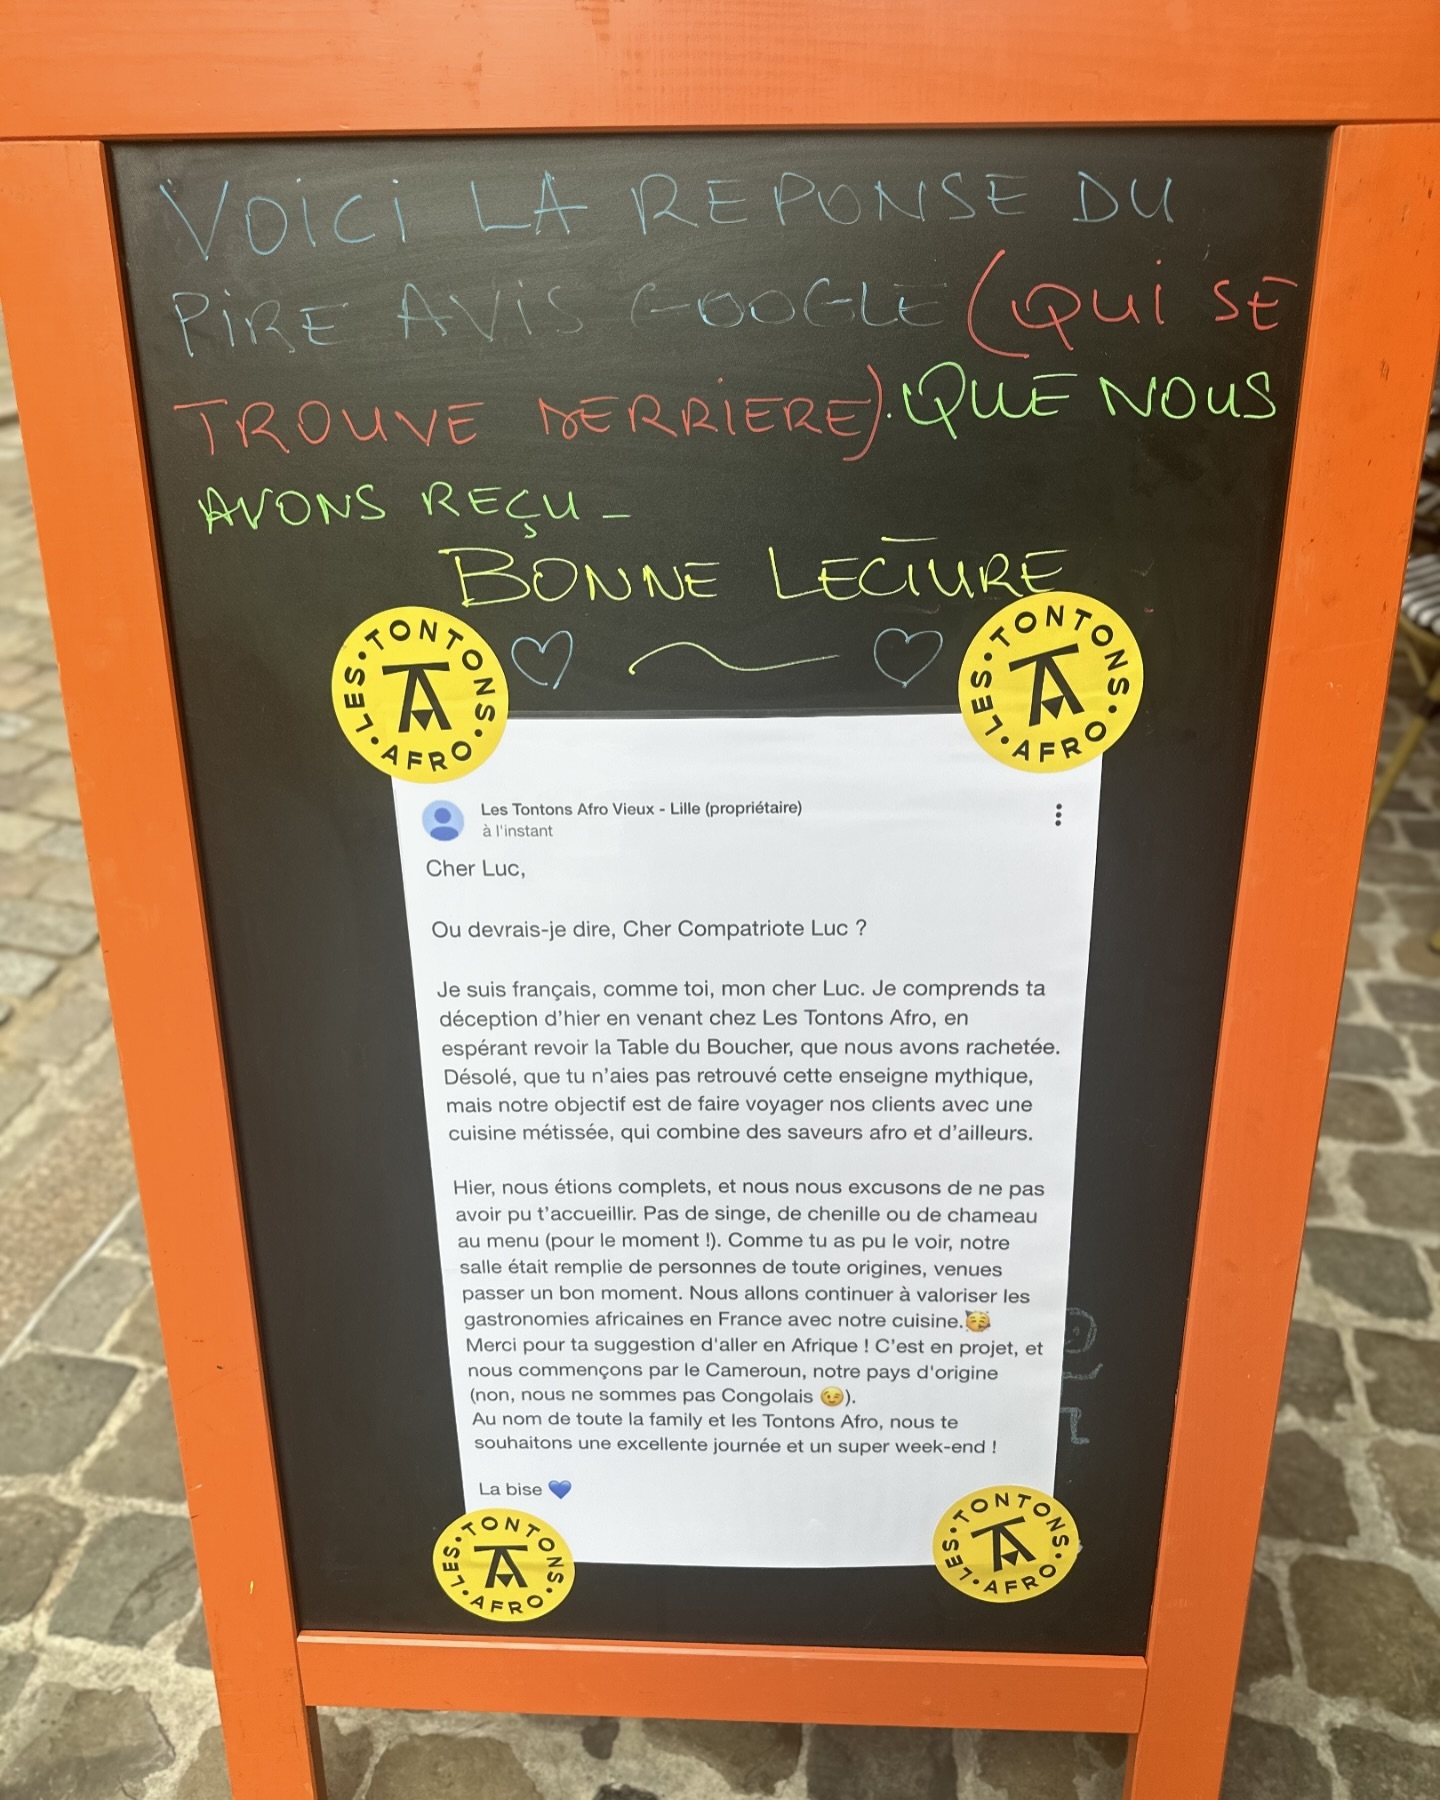 VOICI LA REPONSE DU
PIRE AVIS GOOGLE (QUI SE
TROUVE DERRIERE). QUE NOUS
AVONS REÇU -
BONNE LECTURE
LES • TONTONS • AFRO •
LES • TONTONS • AFRO •
Les Tontons Afro Vieux - Lille (propriétaire)
à l'instant
Cher Luc,
Ou devrais-je dire, Cher Compatriote Luc ?
Je suis français, comme toi, mon cher Luc. Je comprends ta
déception d'hier en venant chez Les Tontons Afro, en
espérant revoir la Table du Boucher, que nous avons rachetée.
Désolé, que tu n'aies pas retrouvé cette enseigne mythique,
mais notre objectif est de faire voyager nos clients avec une
cuisine métissée, qui combine des saveurs afro et d'ailleurs.
Hier, nous étions complets, et nous nous excusons de ne pas
avoir pu t'accueillir. Pas de singe, de chenille ou de chameau
au menu (pour le moment !). Comme tu as pu le voir, notre
salle était remplie de personnes de toute origines, venues
passer un bon moment. Nous allons continuer à valoriser les
gastronomies africaines en France avec notre cuisine.🥳
Merci pour ta suggestion d'aller en Afrique ! C'est en projet, et
nous commençons par le Cameroun, notre pays d'origine
(non, nous ne sommes pas Congolais 😉).
Au nom de toute la family et les Tontons Afro, nous te
souhaitons une excellente journée et un super week-end !
La bise 💙
LES • TONTONS • AFRO •
LES • TONTONS • AFRO •